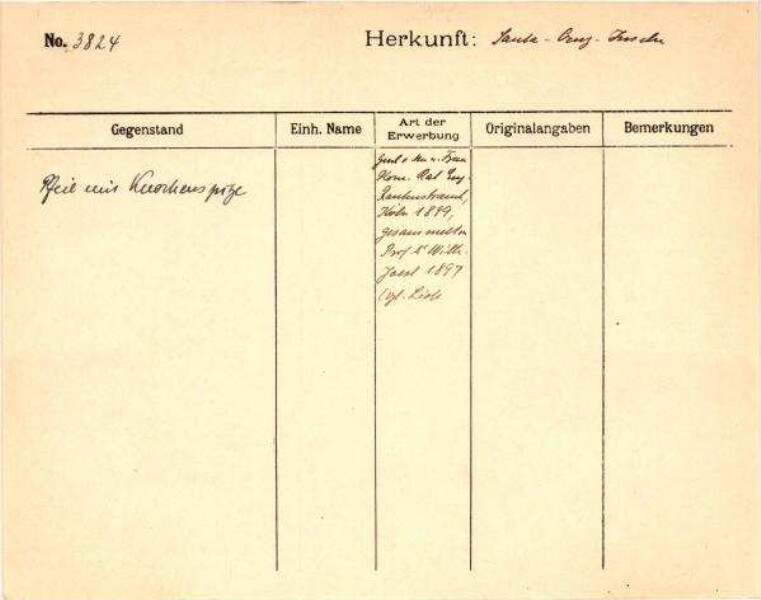 No. 3824
Herkunft: Santa-Cruz-Inseln
Gegenstand
Einh. Name
Art der Erwerbung
Originalangaben
Bemerkungen
Pfeil mit Knochenspitze
Frau
Kom. Rat Eug.
Rautenstrauch,
Köln 1899,
gesammelt von
Prof. Dr Wilh.
Joest 1897
(vgl. Liste